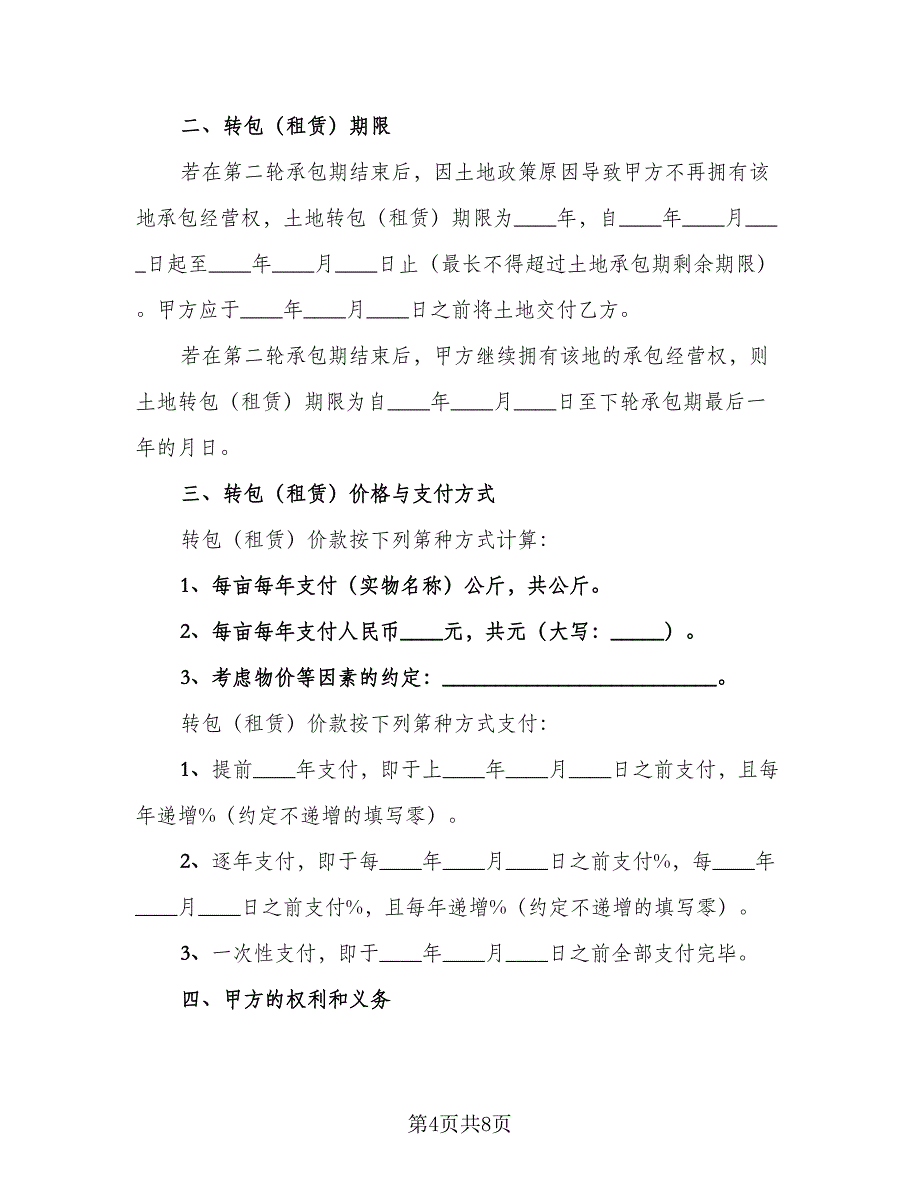 二、转包（租赁）期限
若在第二轮承包期结束后，因土地政策原因导致甲方不再拥有该
地承包经营权，土地转包（租赁）期限为____年，自____年____月___
_日起至____年____月____日止（最长不得超过土地承包期剩余期限）
。甲方应于____年____月____日之前将土地交付乙方。
若在第二轮承包期结束后，甲方继续拥有该地的承包经营权，则
土地转包（租赁）期限为自____年____月____日至下轮承包期最后一
年的月日。
三、转包（租赁）价格与支付方式
转包（租赁）价款按下列第种方式计算：
1、每亩每年支付（实物名称）公斤，共公斤。
2、每亩每年支付人民币____元，共元（大写：_____）。
3、考虑物价等因素的约定：__________________________。
转包（租赁）价款按下列第种方式支付：
1、提前____年支付，即于上____年____月____日之前支付，且每
年递增%（约定不递增的填写零）。
2、逐年支付，即于每____年____月____日之前支付%，每____年
____月____日之前支付%，且每年递增%（约定不递增的填写零）。
3、一次性支付，即于____年____月____日之前全部支付完毕。
四、甲方的权利和义务
第4页共8页